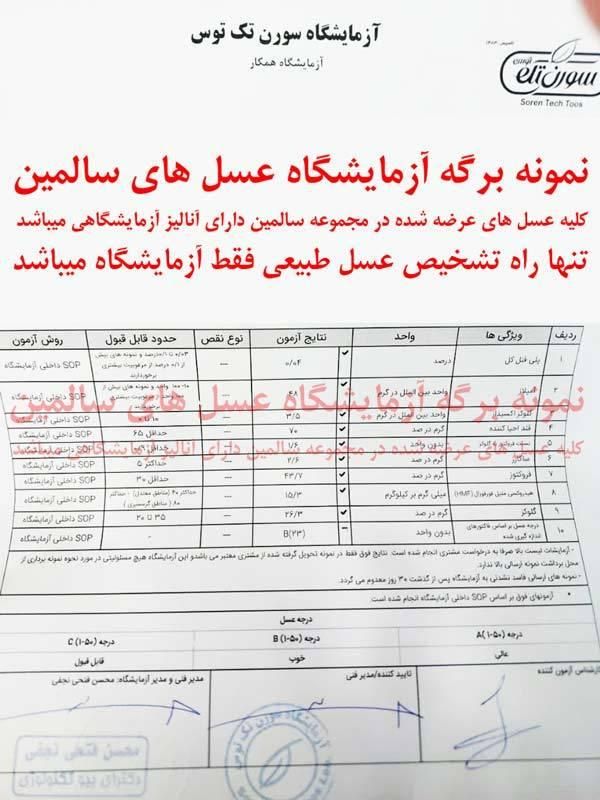 آزمایشگاه سورن تک توس
آزمایشگاه همکار
تاسیس: ۱۳۸۳
سورن تک
توس
Soren Tech Toos
نمونه برگه آزمایشگاه عسل های سالمین
کلیه عسل های عرضه شده در مجموعه سالمین دارای آنالیز آزمایشگاهی میباشد
تنها راه تشخیص عسل طبیعی فقط آزمایشگاه میباشد
ردیف ویژگی ها واحد نتایج آزمون نوع نقص حدود قابل قبول روش آزمون
۱ پلی فنل کل درصد ۰/۰۴ --- ۰/۰۳ تا ۰/۱ درصد و نمونه های بیش از ۰/۱ درصد از مرغوبیت بیشتری برخوردارند SOP داخلی آزمایشگاه
۲ واحد بین الملل در گرم --- SOP داخلی آزمایشگاه
نمونه برگه آزمایشگاه عسل های سالمین
۳ گلوکز اکسیداز واحد بین الملل در گرم ۳/۵ --- SOP داخلی آزمایشگاه
۴ قند احیا کننده گرم در صد ۷۰ --- حداقل ۶۵ SOP داخلی آزمایشگاه
۵ نسبت فروکتوز به گلوکز بدون واحد ۱/۶ --- حداقل ۰/۹ SOP داخلی آزمایشگاه
کلیه عسل های عرضه شده در مجموعه سالمین دارای آنالیز آزمایشگاهی میباشد
۶ ساکارز گرم در صد ۲/۶ --- حداکثر ۵ SOP داخلی آزمایشگاه
۷ فروکتوز گرم در صد ۴۳/۷ --- حداقل ۳۰ SOP داخلی آزمایشگاه
۸ هیدروکسی متیل فورفورال (HMF) میلی گرم بر کیلوگرم ۱۵/۳ --- حداکثر ۴۰ (مناطق معتدل) - حداکثر ۸۰ (مناطق گرمسیری) SOP داخلی آزمایشگاه
۹ گلوکز گرم در صد ۲۶/۳ --- ۲۰ تا ۳۵ SOP داخلی آزمایشگاه
۱۰ درجه عسل بر اساس فاکتورهای اندازه گیری شده بدون واحد B(۲۳) --- SOP داخلی آزمایشگاه
- آزمایشات لیست بالا صرفا به درخواست مشتری انجام شده است. نتایج فوق فقط در نمونه تحویل گرفته شده از مشتری معتبر می باشد و این آزمایشگاه هیچ مسئولیتی در مورد نحوه نمونه برداری از
محل برداشت نمونه ارسالی بالا ندارد.
- نمونه های ارسالی فاسد نشدنی به آزمایشگاه پس از گذشت ۳۰ روز معدوم می گردد.
* آزمونهای فوق بر اساس SOP داخلی آزمایشگاه انجام شده است.
درجه عسل
درجه A(۱-۵۰) درجه B (۱-۵۰) درجه C (۱-۵۰)
عالی خوب قابل قبول
کارشناس آزمون کننده تایید کننده/مدیر فنی مدیر فنی و مدیر آزمایشگاه: محسن فتحی نجفی
آزمایشگاه سورن تک توس
محسن فتحی نجفی
دکترای بیوتکنولوژی